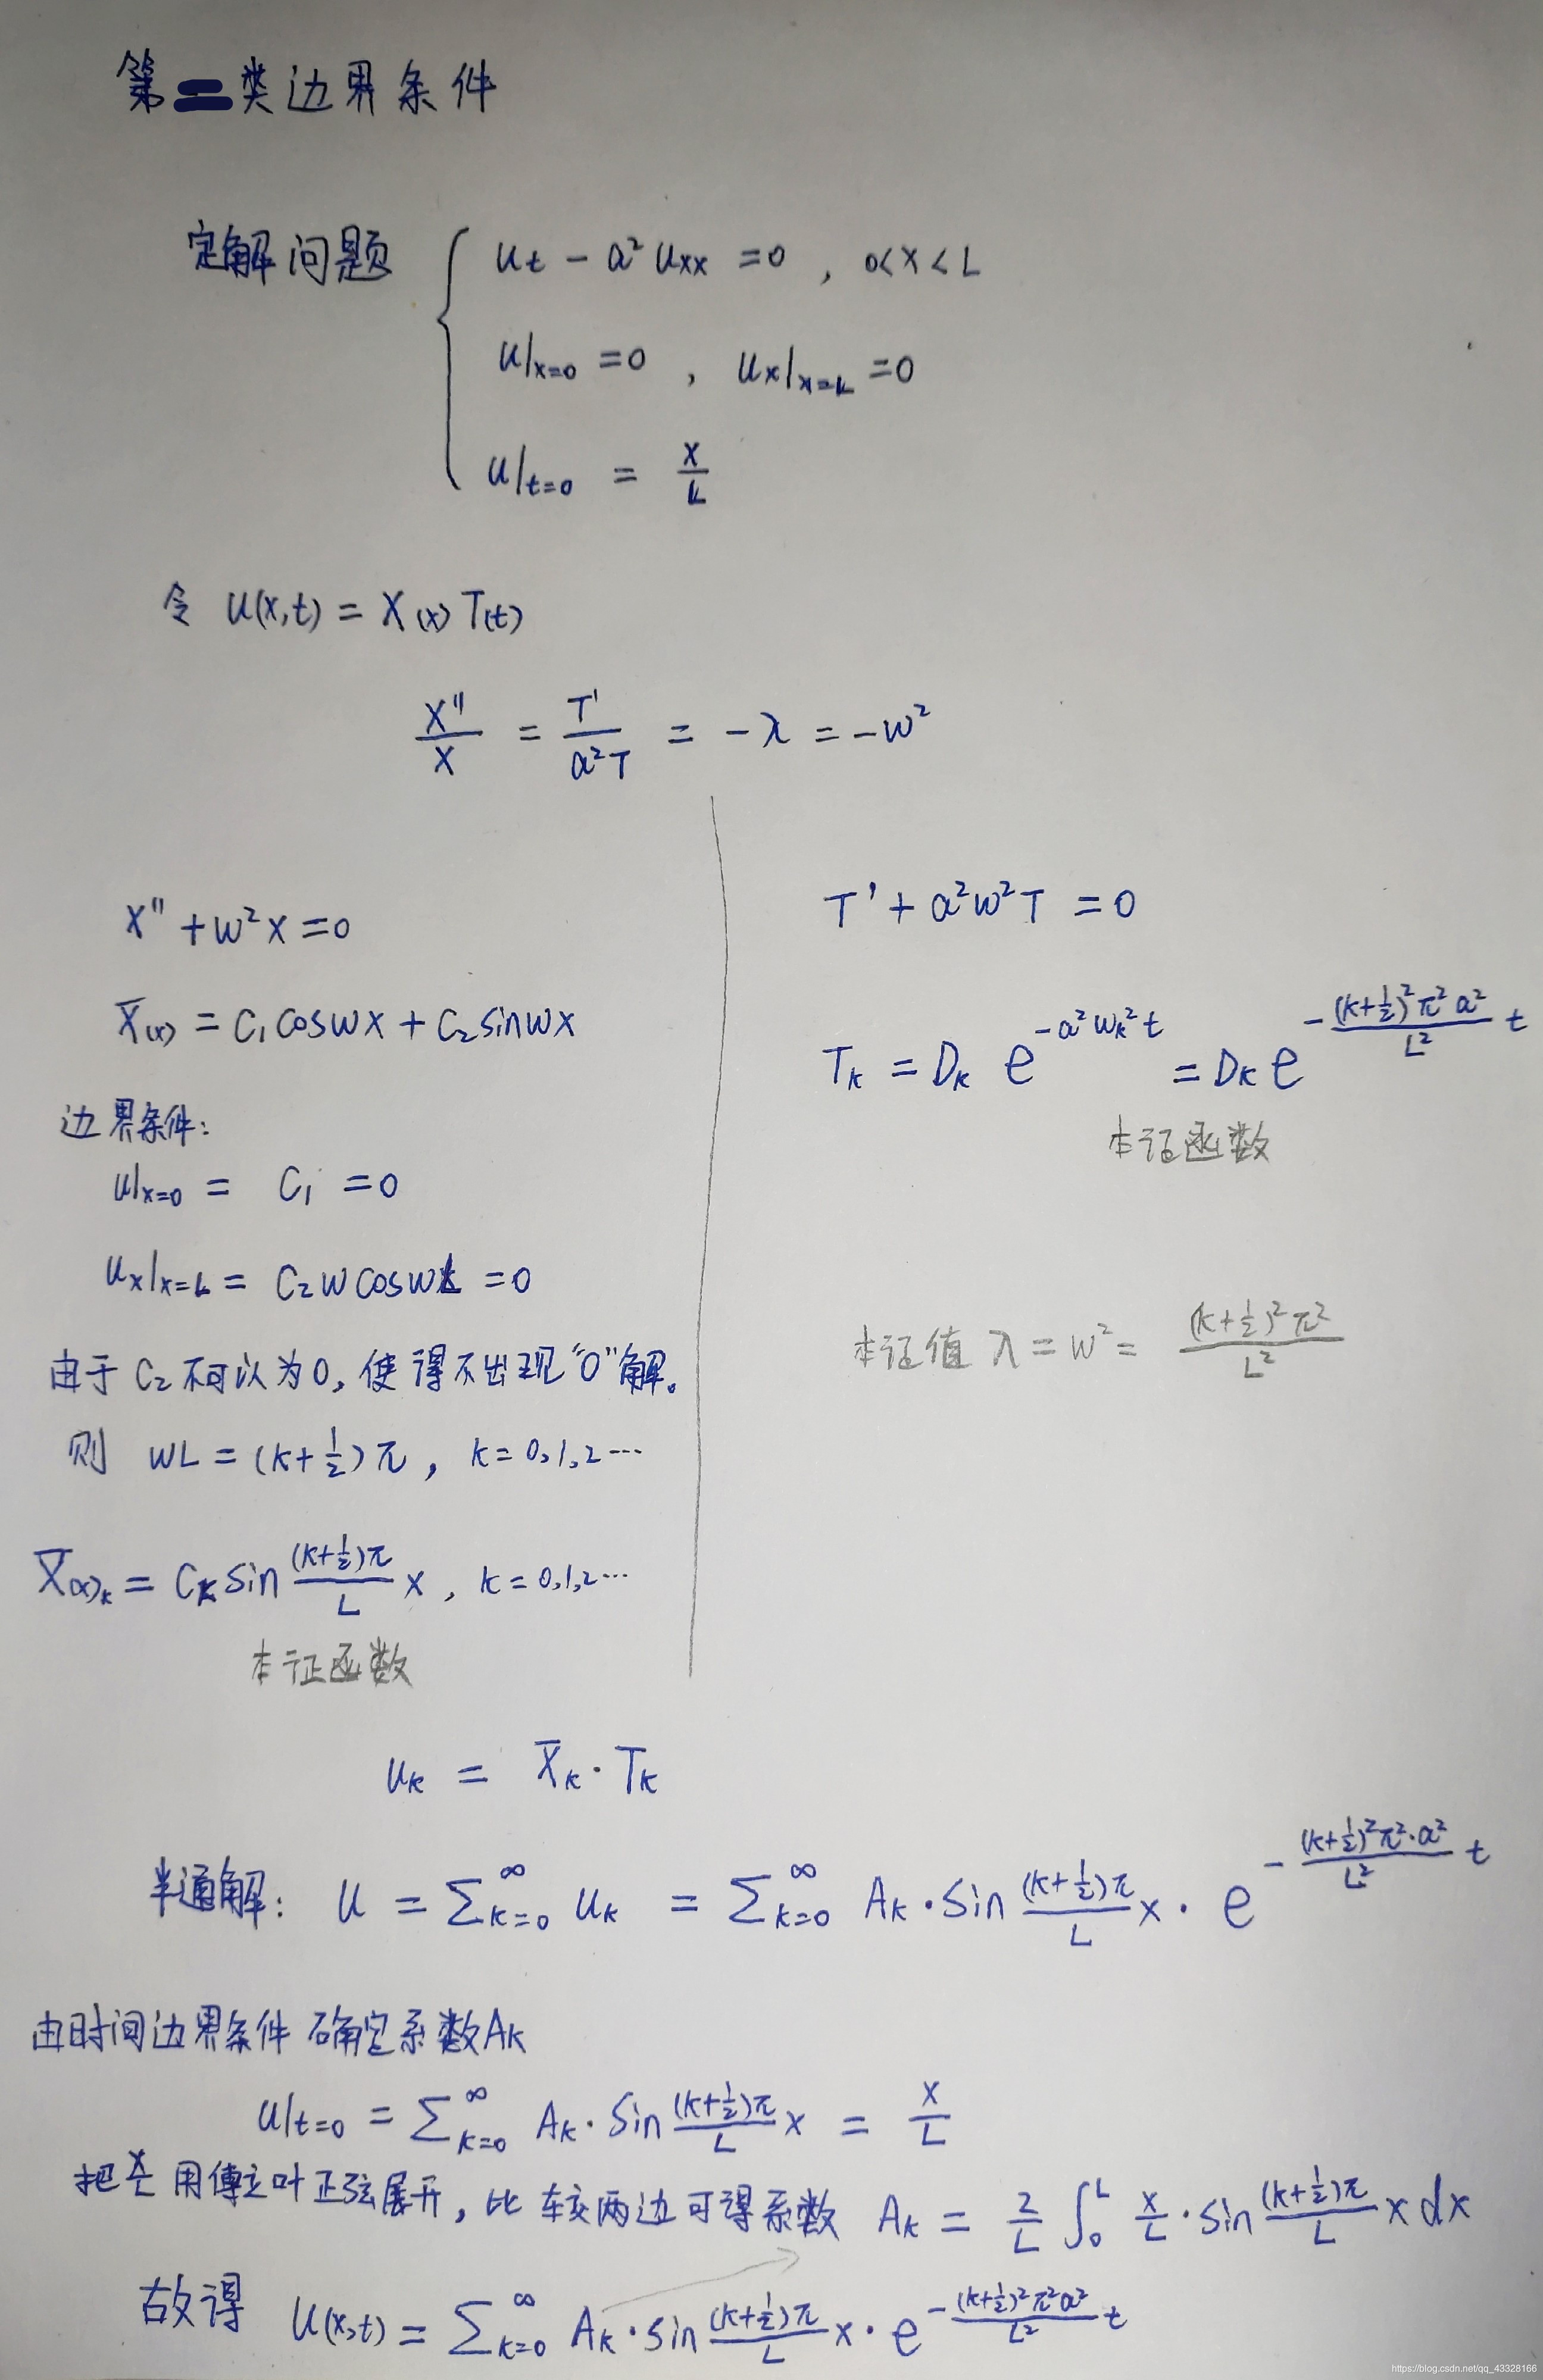 第二类边界条件
定解问题 { u_t - a² u_xx = 0 , 0<x<L
u|_{x=0} = 0 , u_x|_{x=L} = 0
u|_{t=0} = x/L
令 u(x,t) = X(x) T(t)
X''/X = T'/(a²T) = -λ = -w²
X'' + w²X = 0
X(x) = C₁coswx + C₂sinwx
边界条件:
u|_{x=0} = C₁ = 0
u_x|_{x=L} = C₂wcoswL = 0
由于C₂不可以为0, 使得不出现“0”解。
则 wL = (k+1/2)π , k = 0,1,2…
X(x)_k = C_k sin((k+1/2)π/L)x , k = 0,1,2…
本证函数
T' + a²w²T = 0
T_k = D_k e^{-a²w_k²t} = D_k e^{-((k+1/2)²π²a²/L²)t}
本证函数
本证值 λ = w² = (k+1/2)²π²/L²
u_k = X_k · T_k
半通解: u = ∑_{k=0}^∞ u_k = ∑_{k=0}^∞ A_k · sin((k+1/2)π/L)x · e^{-((k+1/2)²π²·a²/L²)t}
由时间边界条件 确定系数A_k
u|_{t=0} = ∑_{k=0}^∞ A_k · sin((k+1/2)π/L)x = x/L
把x/L用傅立叶正弦展开, 比较两边可得系数 A_k = 2/L ∫₀^L x/L · sin((k+1/2)π/L)x dx
故得 u(x,t) = ∑_{k=0}^∞ A_k · sin((k+1/2)π/L)x · e^{-((k+1/2)²π²a²/L²)t}
https://blog.csdn.net/qq_43328166